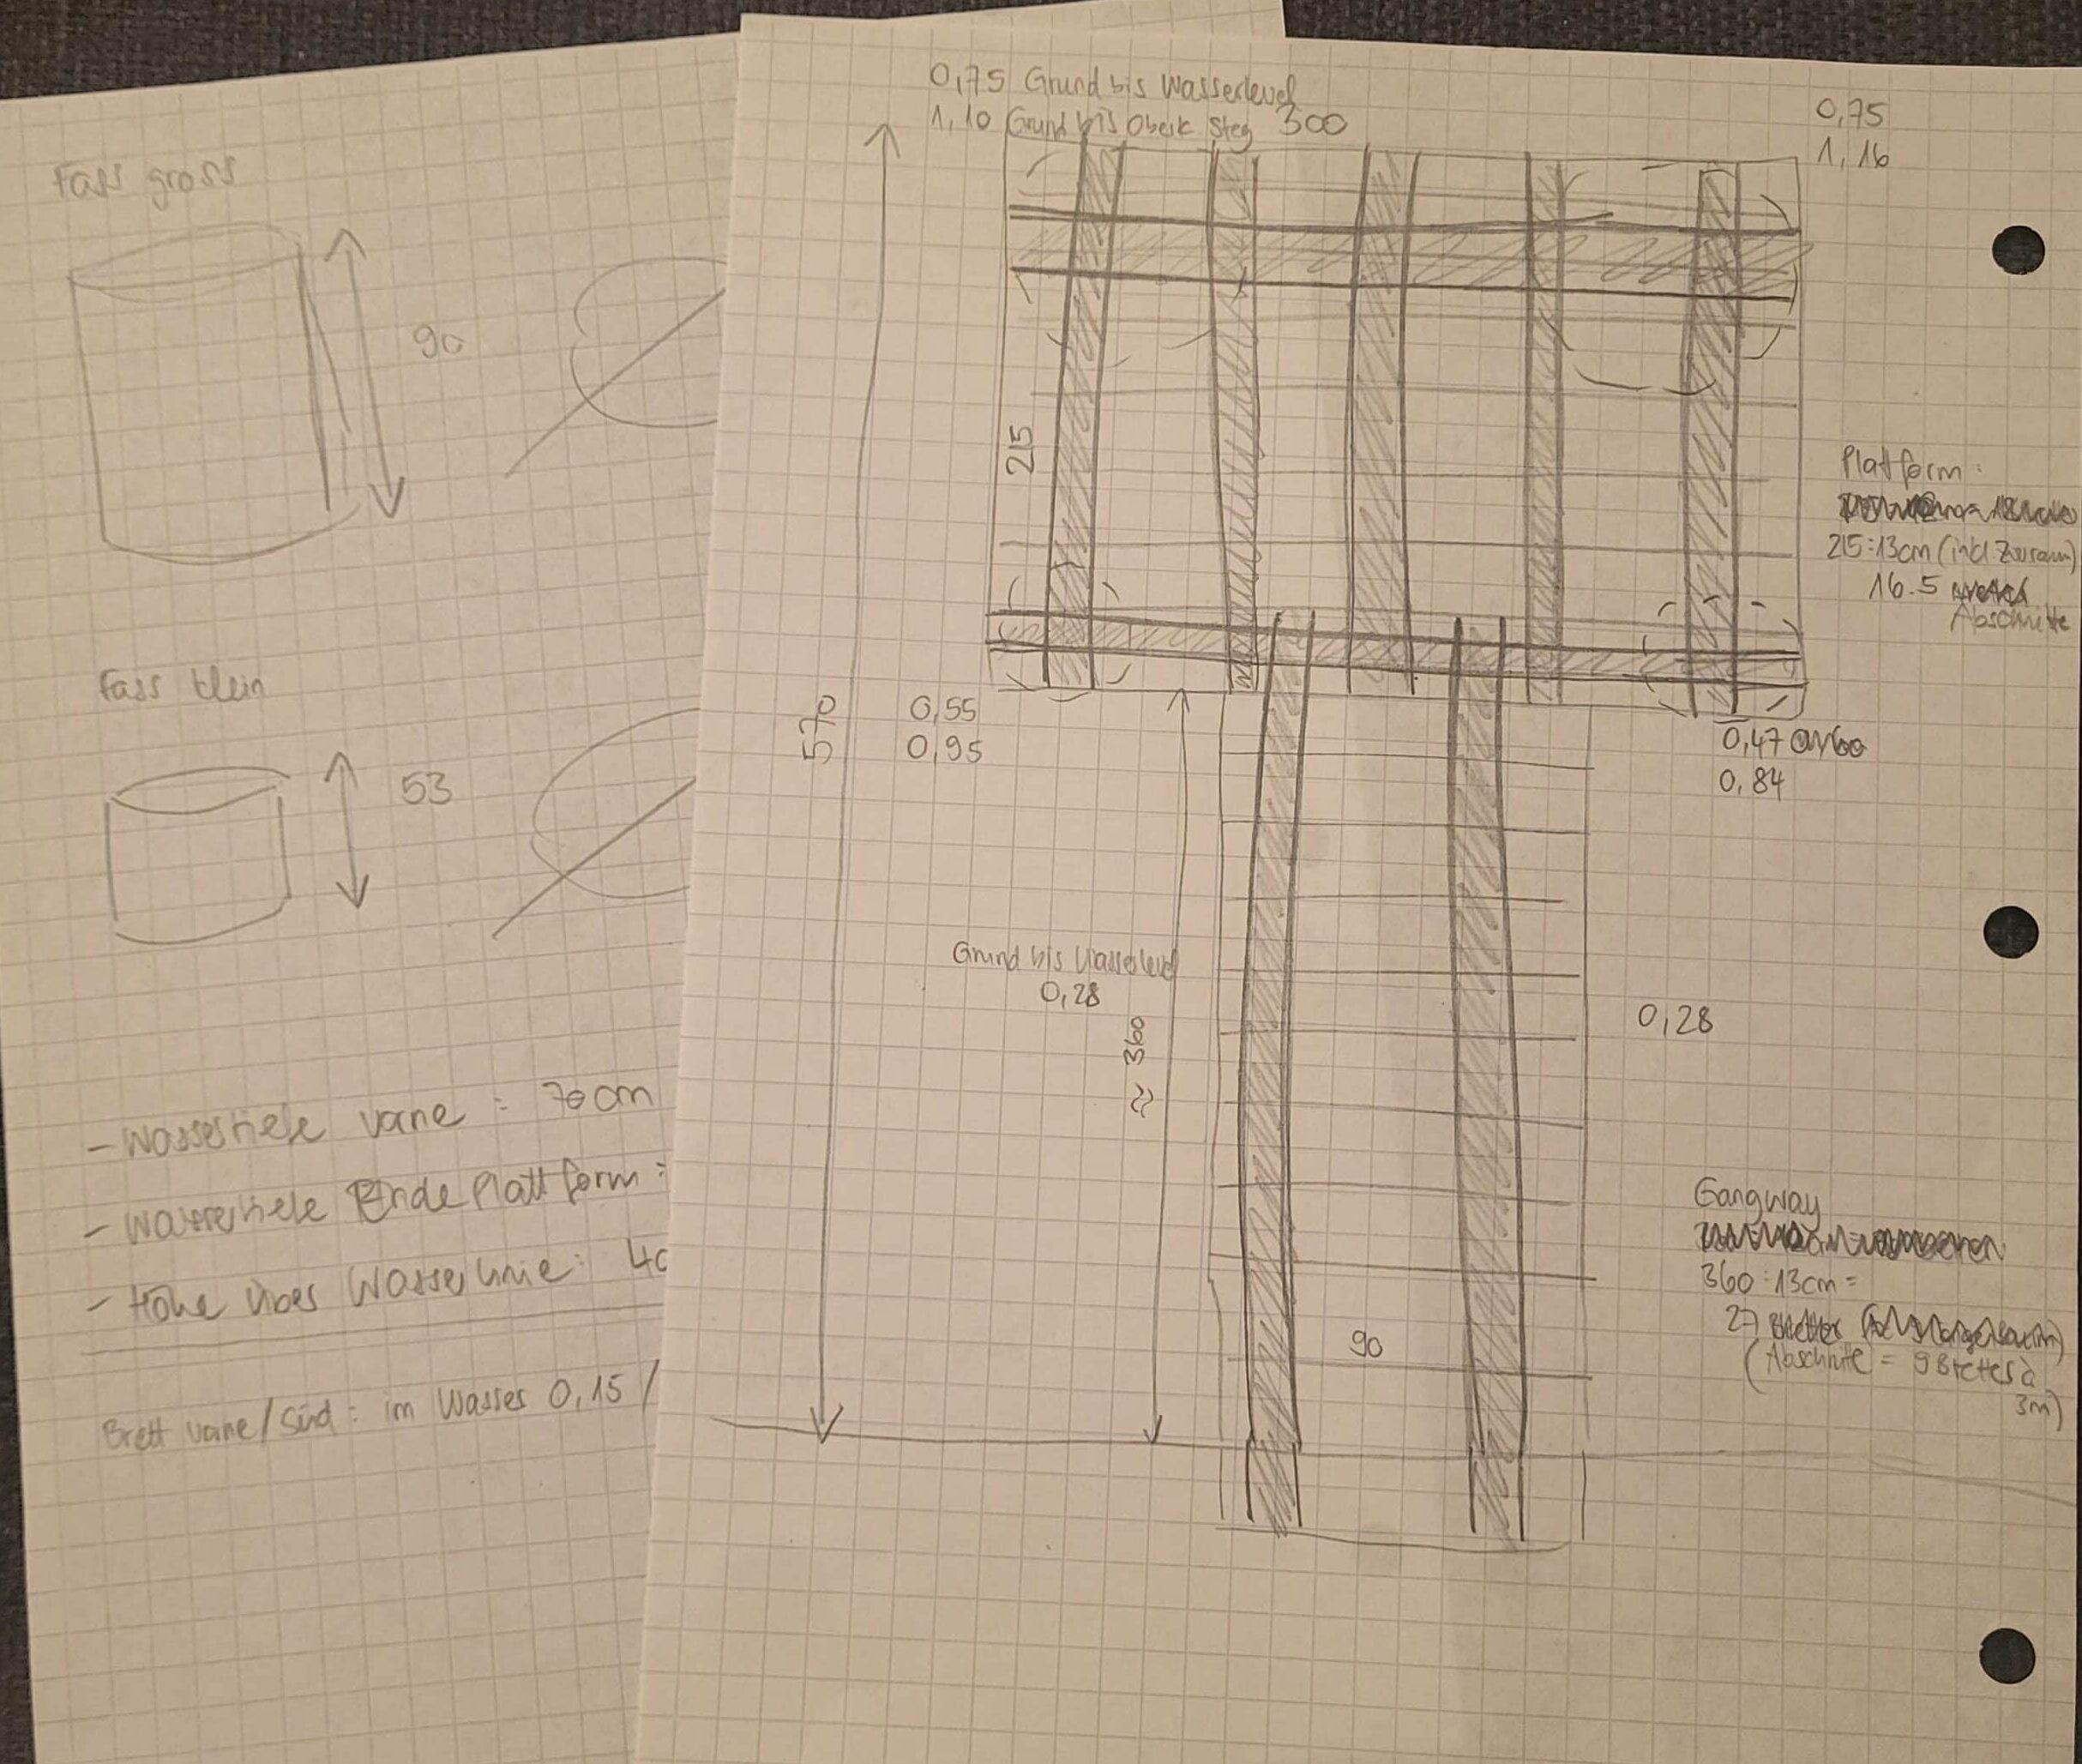 Fass gross
90
Fass klein
53
- Wassertiefe vorne : 70cm
- Wassertiefe Ende Plattform :
- Höhe über Wasserlinie: 40
Brett vorne/Süd: im Wasser 0,15 /
0,75 Grund bis Wasserlevel
1,10 Grund bis Oberk Steg 300
0,75
1,16
215
Platform :
215:13cm (incl Zwraum)
16.5
Abschnitte
570
0,55
0,95
0,47
0,84
Grund bis Wasserlevel
0,28
≈ 360
0,28
Gangway
360:13cm =
27
(Abschnitte = 9 Bretter à
3m)
90